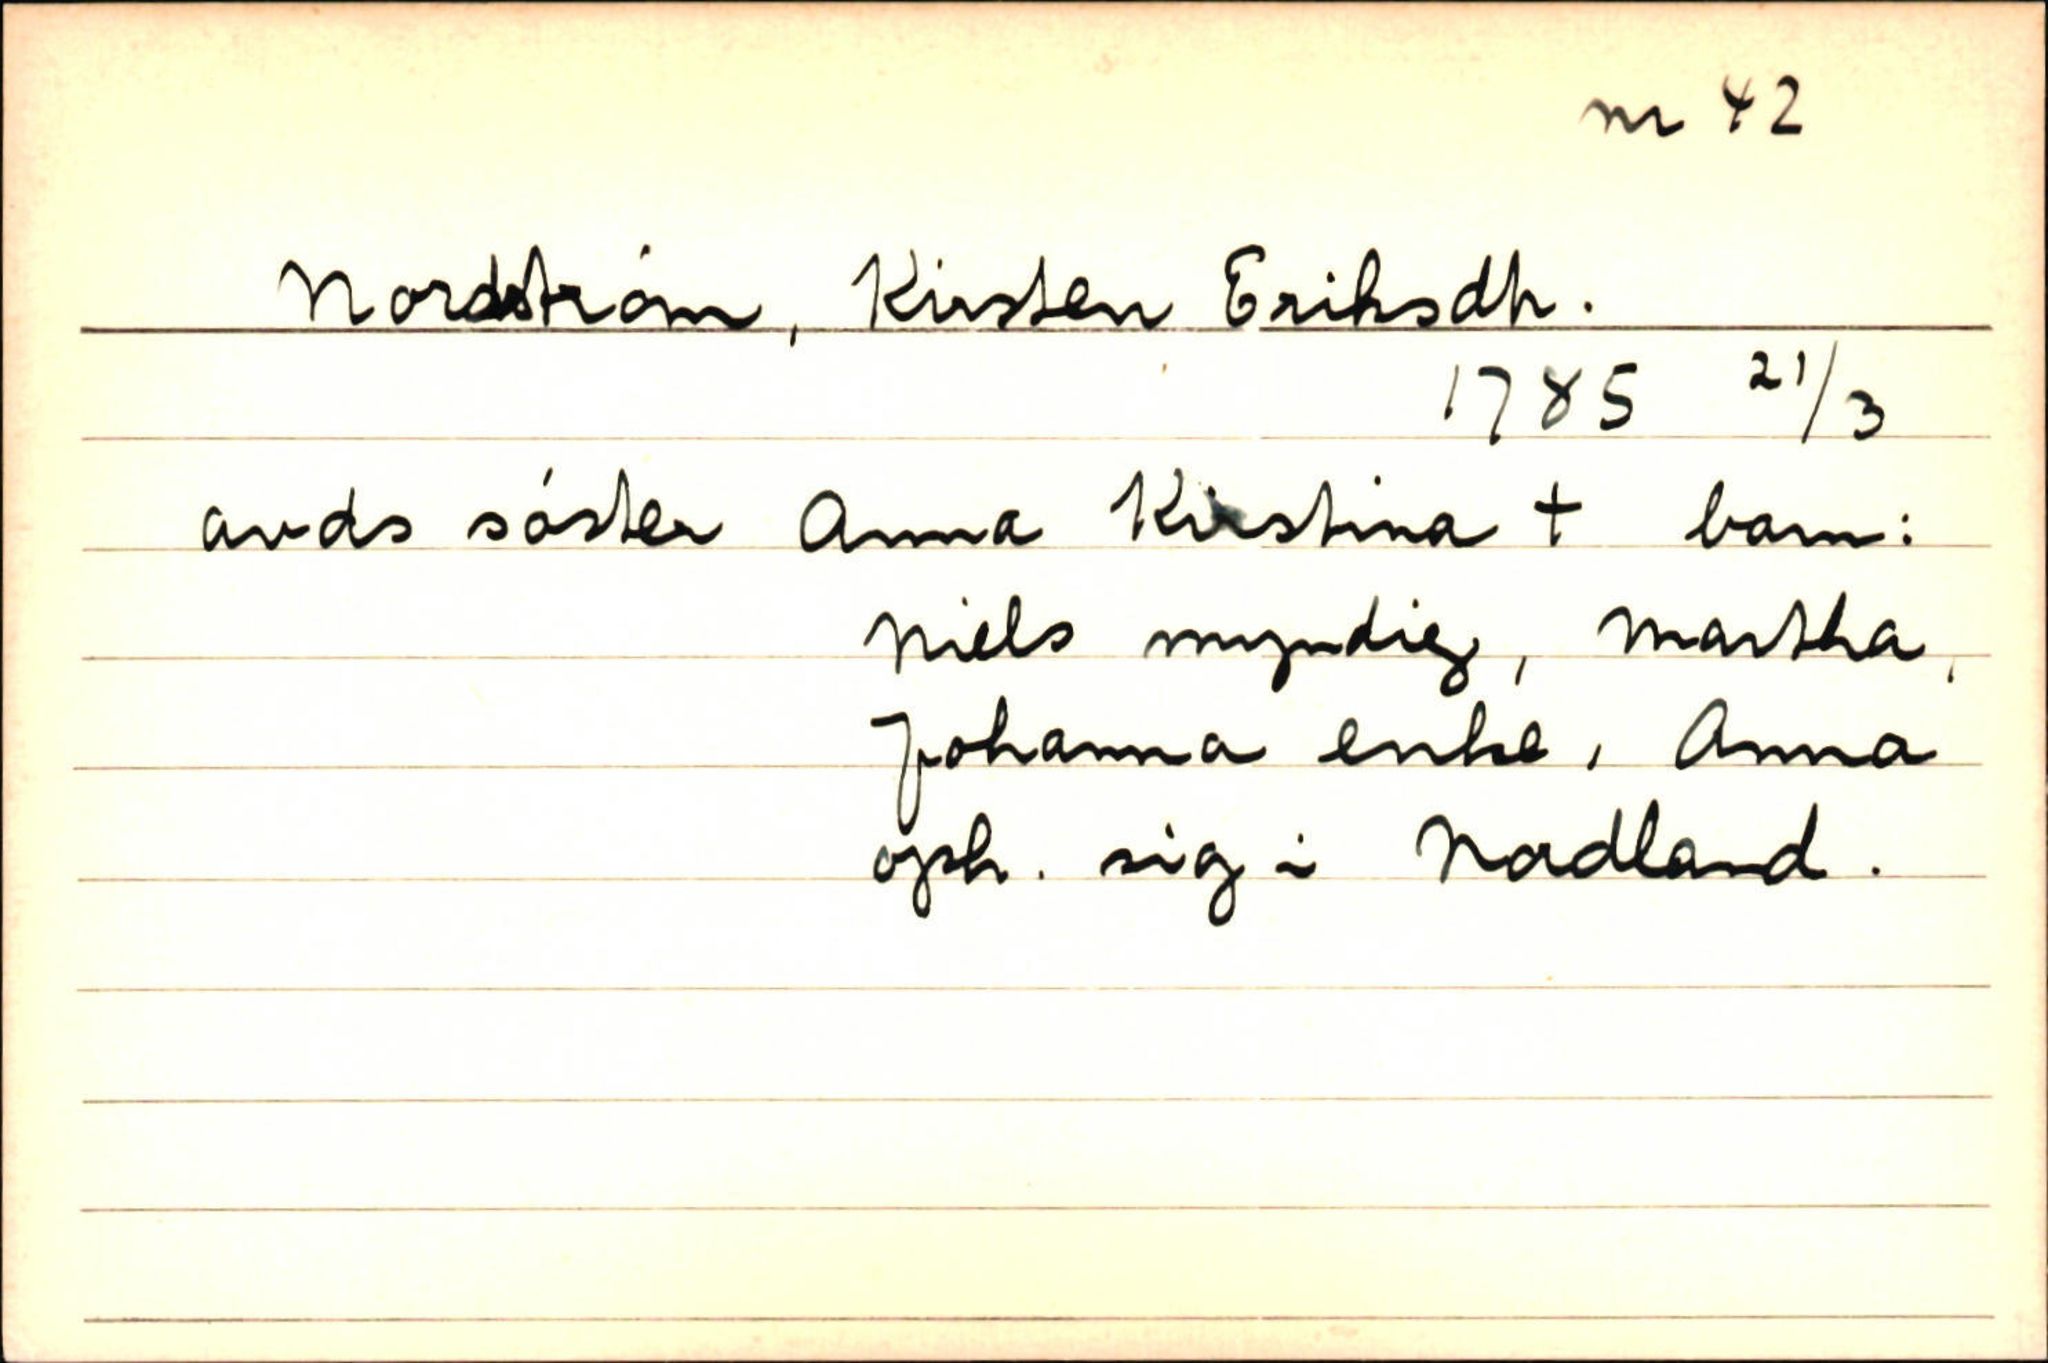 nr 42
Nordström, Kirsten Eriksdtr.
1785 21/3
avds söster Anna Kirstina + barn:
Niels myndig, Martha,
Johanna enke, Anna
oph. sig i Nordland.